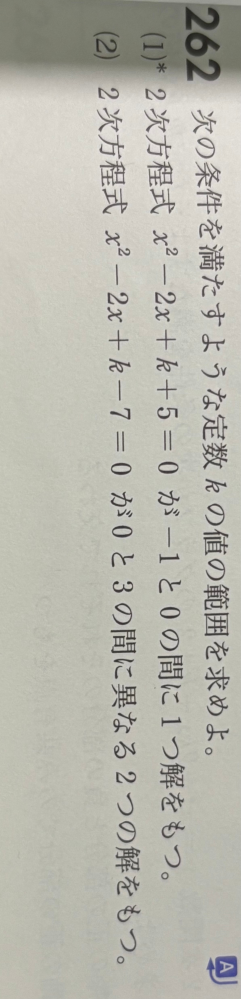 262 次の条件を満たすような定数 k の値の範囲を求めよ。 A
(1)* 2次方程式 x² − 2x + k + 5 = 0 が −1 と 0 の間に1つ解をもつ。
(2) 2次方程式 x² − 2x + k − 7 = 0 が 0 と 3 の間に異なる2つの解をもつ。